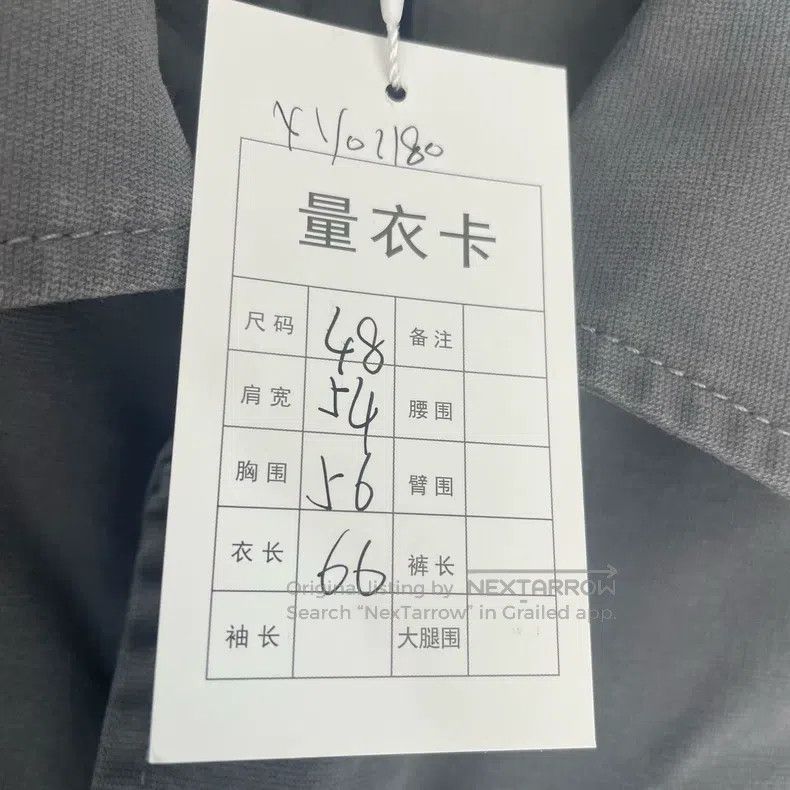 X1/02180
量衣卡
尺码 48 备注
肩宽 54 腰围
胸围 56 臂围
衣长 66 裤长
袖长 大腿围
Original listing by NEXTARROW
Search “NexTarrow” in Grailed app.